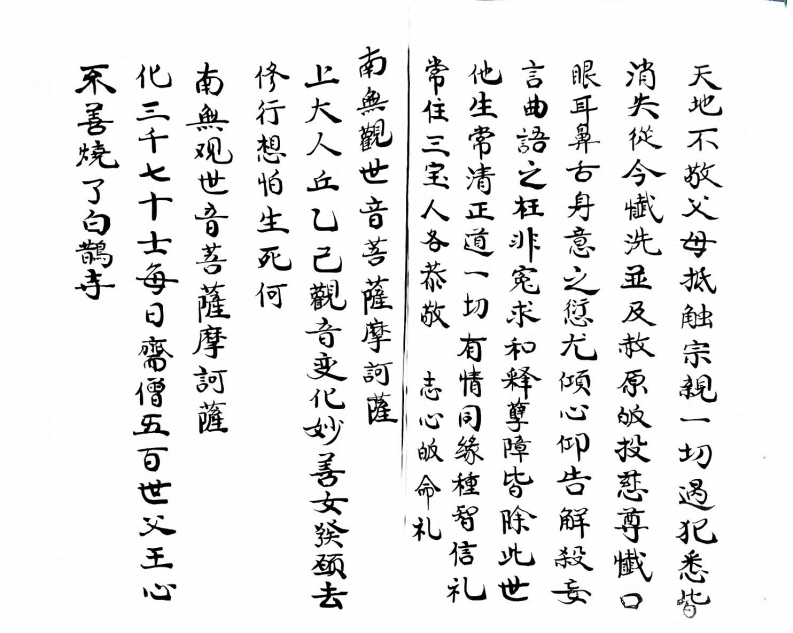 天地不敬父母抵触宗親一切过犯悉皆
消失從今懺洗並及赦原皈投慈尊懺口
眼耳鼻舌身意之愆尤傾心仰告解殺妄
言曲語之枉非冤求和释孽障皆除此世
他生常清正道一切有情同缘種智信礼
常住三宝人各恭敬 志心皈命礼
南無觀世音菩薩摩訶薩
上大人丘乙己觀音变化妙善女發願去
修行想怕生死何
南無观世音菩薩摩訶薩
化三千七十士每日齋僧五百世父王心
不善燒了白鵲寺